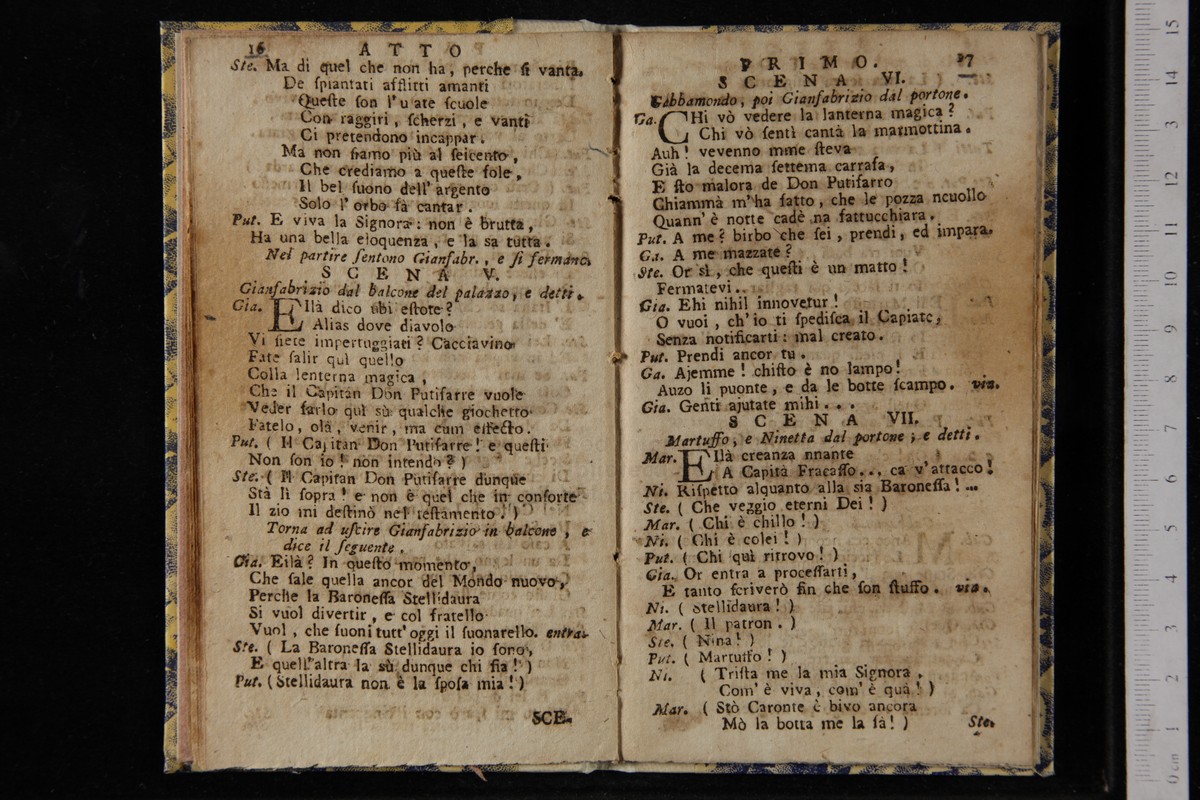 16 ATTO
Ste. Ma di quel che non ha, perche ſi vanta.
De ſpiantati afflitti amanti
Queſte ſon l'uſate ſcuole
Con raggiri, ſcherzi, e vanti
Ci pretendono incappar.
Ma non ſiamo più al ſeicento,
Che crediamo a queſte fole,
Il bel ſuono dell'argento
Solo l'orbo fà cantar.
Put. E viva la Signora: non è brutta,
Ha una bella eloquenza, e la sa tutta.
Nel partire ſentono Gianfabr., e ſi fermano.
SCENA V.
Gianfabrizio dal balcone del palazzo, e detti.
Gia. Ellà dico ubi eſtote?
Alias dove diavolo
Vi ſiete impertuggiati? Cacciavino
Fate ſalir quì quello
Colla lenterna magica,
Che il Capitan Don Putifarre vuole
Veder farlo quì sù qualche giochetto
Fatelo, olà, venir, ma cum effecto.
Put. ( Il Capitan Don Putifarre! e queſti
Non ſon io! non intendo? )
Ste. ( Il Capitan Don Putifarre dunque
Stà lì ſopra! e non è quel che in conſorte
Il zio mi deſtinò nel teſtamento! )
Torna ad uſcire Gianfabrizio in balcone, e
dice il ſeguente.
Gia. Eilà? In queſto momento,
Che ſale quella ancor del Mondo nuovo,
Perche la Baroneſſa Stellidaura
Si vuol divertir, e col fratello
Vuol, che ſuoni tutt'oggi il ſuonarello. entra.
Ste. ( La Baroneſſa Stellidaura io ſono,
E quell'altra la sù dunque chi ſia! )
Put. ( Stellidaura non è la ſpoſa mia! )
SCE.
PRIMO. 17
SCENA VI.
Gabbamondo, poi Gianfabrizio dal portone.
Ga. CHi vò vedere la lanterna magica?
Chi vò ſentì cantà la marmottina.
Auh! vevenno mme ſteva
Già la decema ſettema carrafa,
E ſto malora de Don Putifarro
Chiammà m'ha fatto, che le pozza ncuollo
Quann'è notte cadè na fattucchiara.
Put. A me? birbo che ſei, prendi, ed impara.
Ga. A me mazzate?
Ste. Or sì, che queſti è un matto!
Fermatevi..
Gia. Ehi nihil innovetur!
O vuoi, ch'io ti ſpediſca il Capiatc,
Senza notificarti: mal creato.
Put. Prendi ancor tu.
Ga. Ajemme! chiſto è no lampo!
Auzo li puonte, e da le botte ſcampo. via.
Gia. Genti ajutate mihi...
SCENA VII.
Martuffo, e Ninetta dal portone, e detti.
Mar. Ellà creanza nnante
A Capità Fracaſſo... ca v'attacco!
Ni. Riſpetto alquanto alla sia Baroneſſa!...
Ste. ( Che veggio eterni Dei! )
Mar. ( Chi è chillo! )
Ni. ( Chi è colei! )
Put. ( Chi quì ritrovo! )
Gia. Or entra a proceſſarti,
E tanto ſcriverò fin che ſon ſtuffo. via.
Ni. ( Stellidaura! )
Mar. ( Il patron. )
Ste. ( Nina! )
Put. ( Martuffo! )
Ni. ( Triſta me la mia Signora,
Com'è viva, com'è quà! )
Mar. ( Stò Caronte è bivo ancora
Mò la botta me la fà! )
Ste.
15
14
13
12
11
10
9
8
7
6
5
4
3
2
1
0 cm